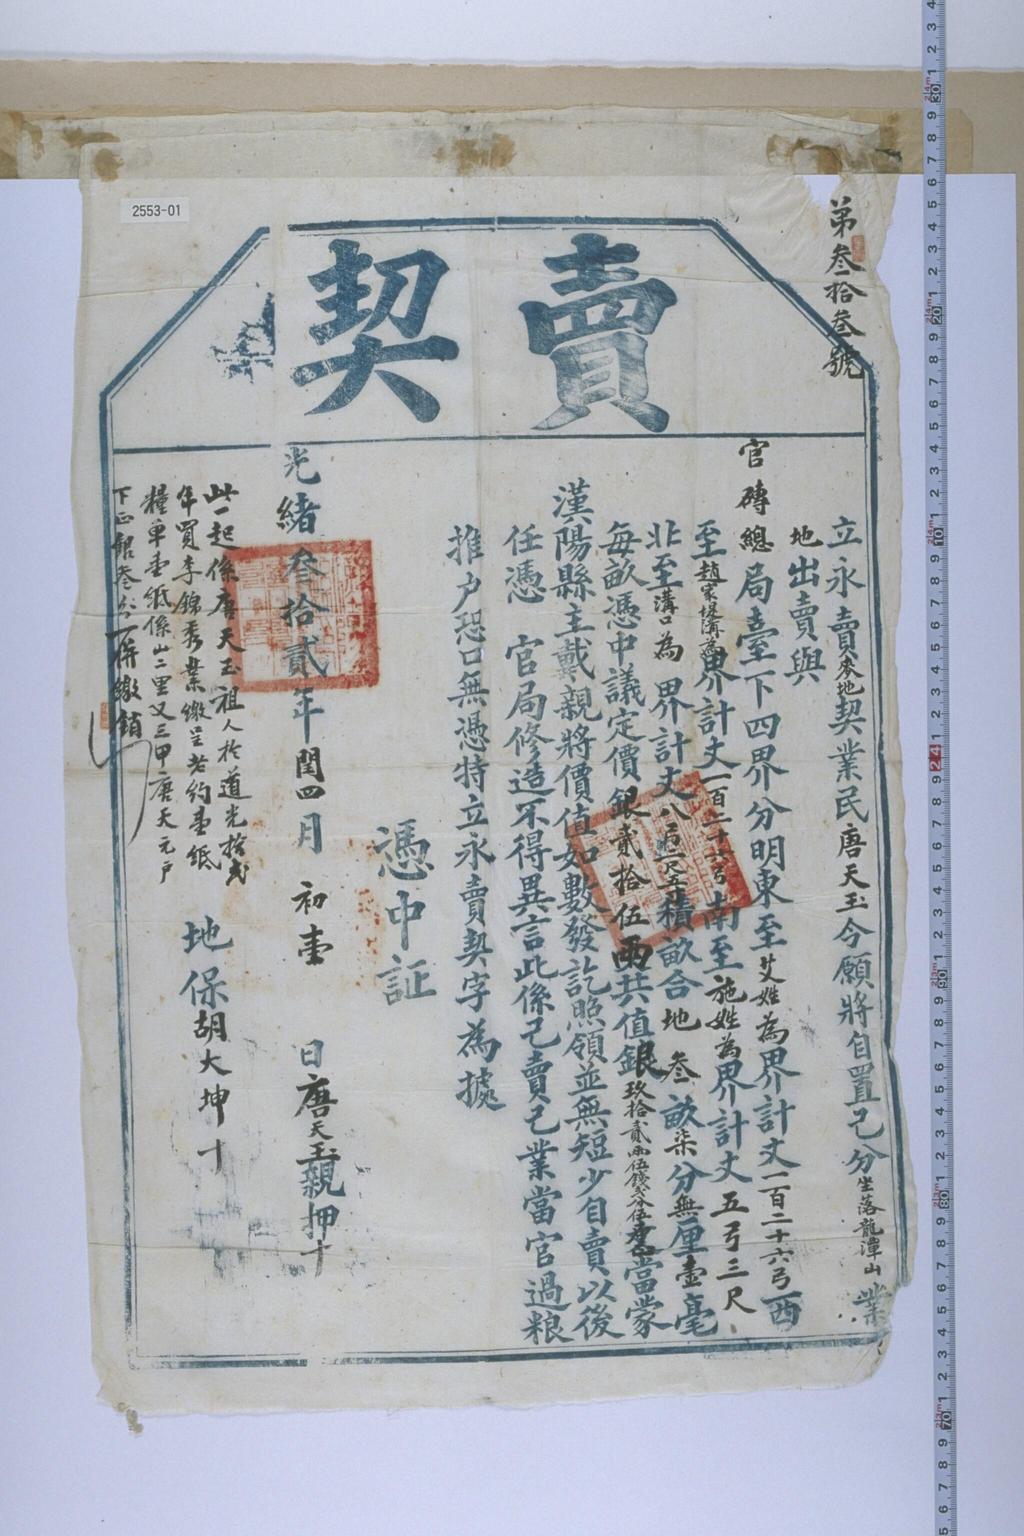 2553-01
第叁拾叁號
賣契
立永賣麥地契業民唐天玉今願將自置己分坐落龍潭山業
地出賣與
官磚總局臺下四界分明東至艾姓為界計丈一百二十六弓西
至趙家堤溝為界計丈一百二十六弓南至施姓為界計丈五弓三尺
北至溝口為界計丈八弓 積畝合地叁畝柒分無厘壹毫
每畝憑中議定價銀貳拾伍兩共值銀玖拾貳兩伍錢 當蒙
漢陽縣主戴親將價值如數發訖照領並無短少自賣以後
任憑 官局修造不得異言此係己賣己業當官過粮
推户恐口無憑特立永賣契字為據
憑中証
光緒叁拾貳年閏四月初壹日唐天玉親押十
地保胡大坤十
此一起係唐天玉祖人於道光拾貳
年買李錦秀業繳呈老約壹紙
糧單壹紙係山二里又三甲唐天元户
下正 叁 併繳銷